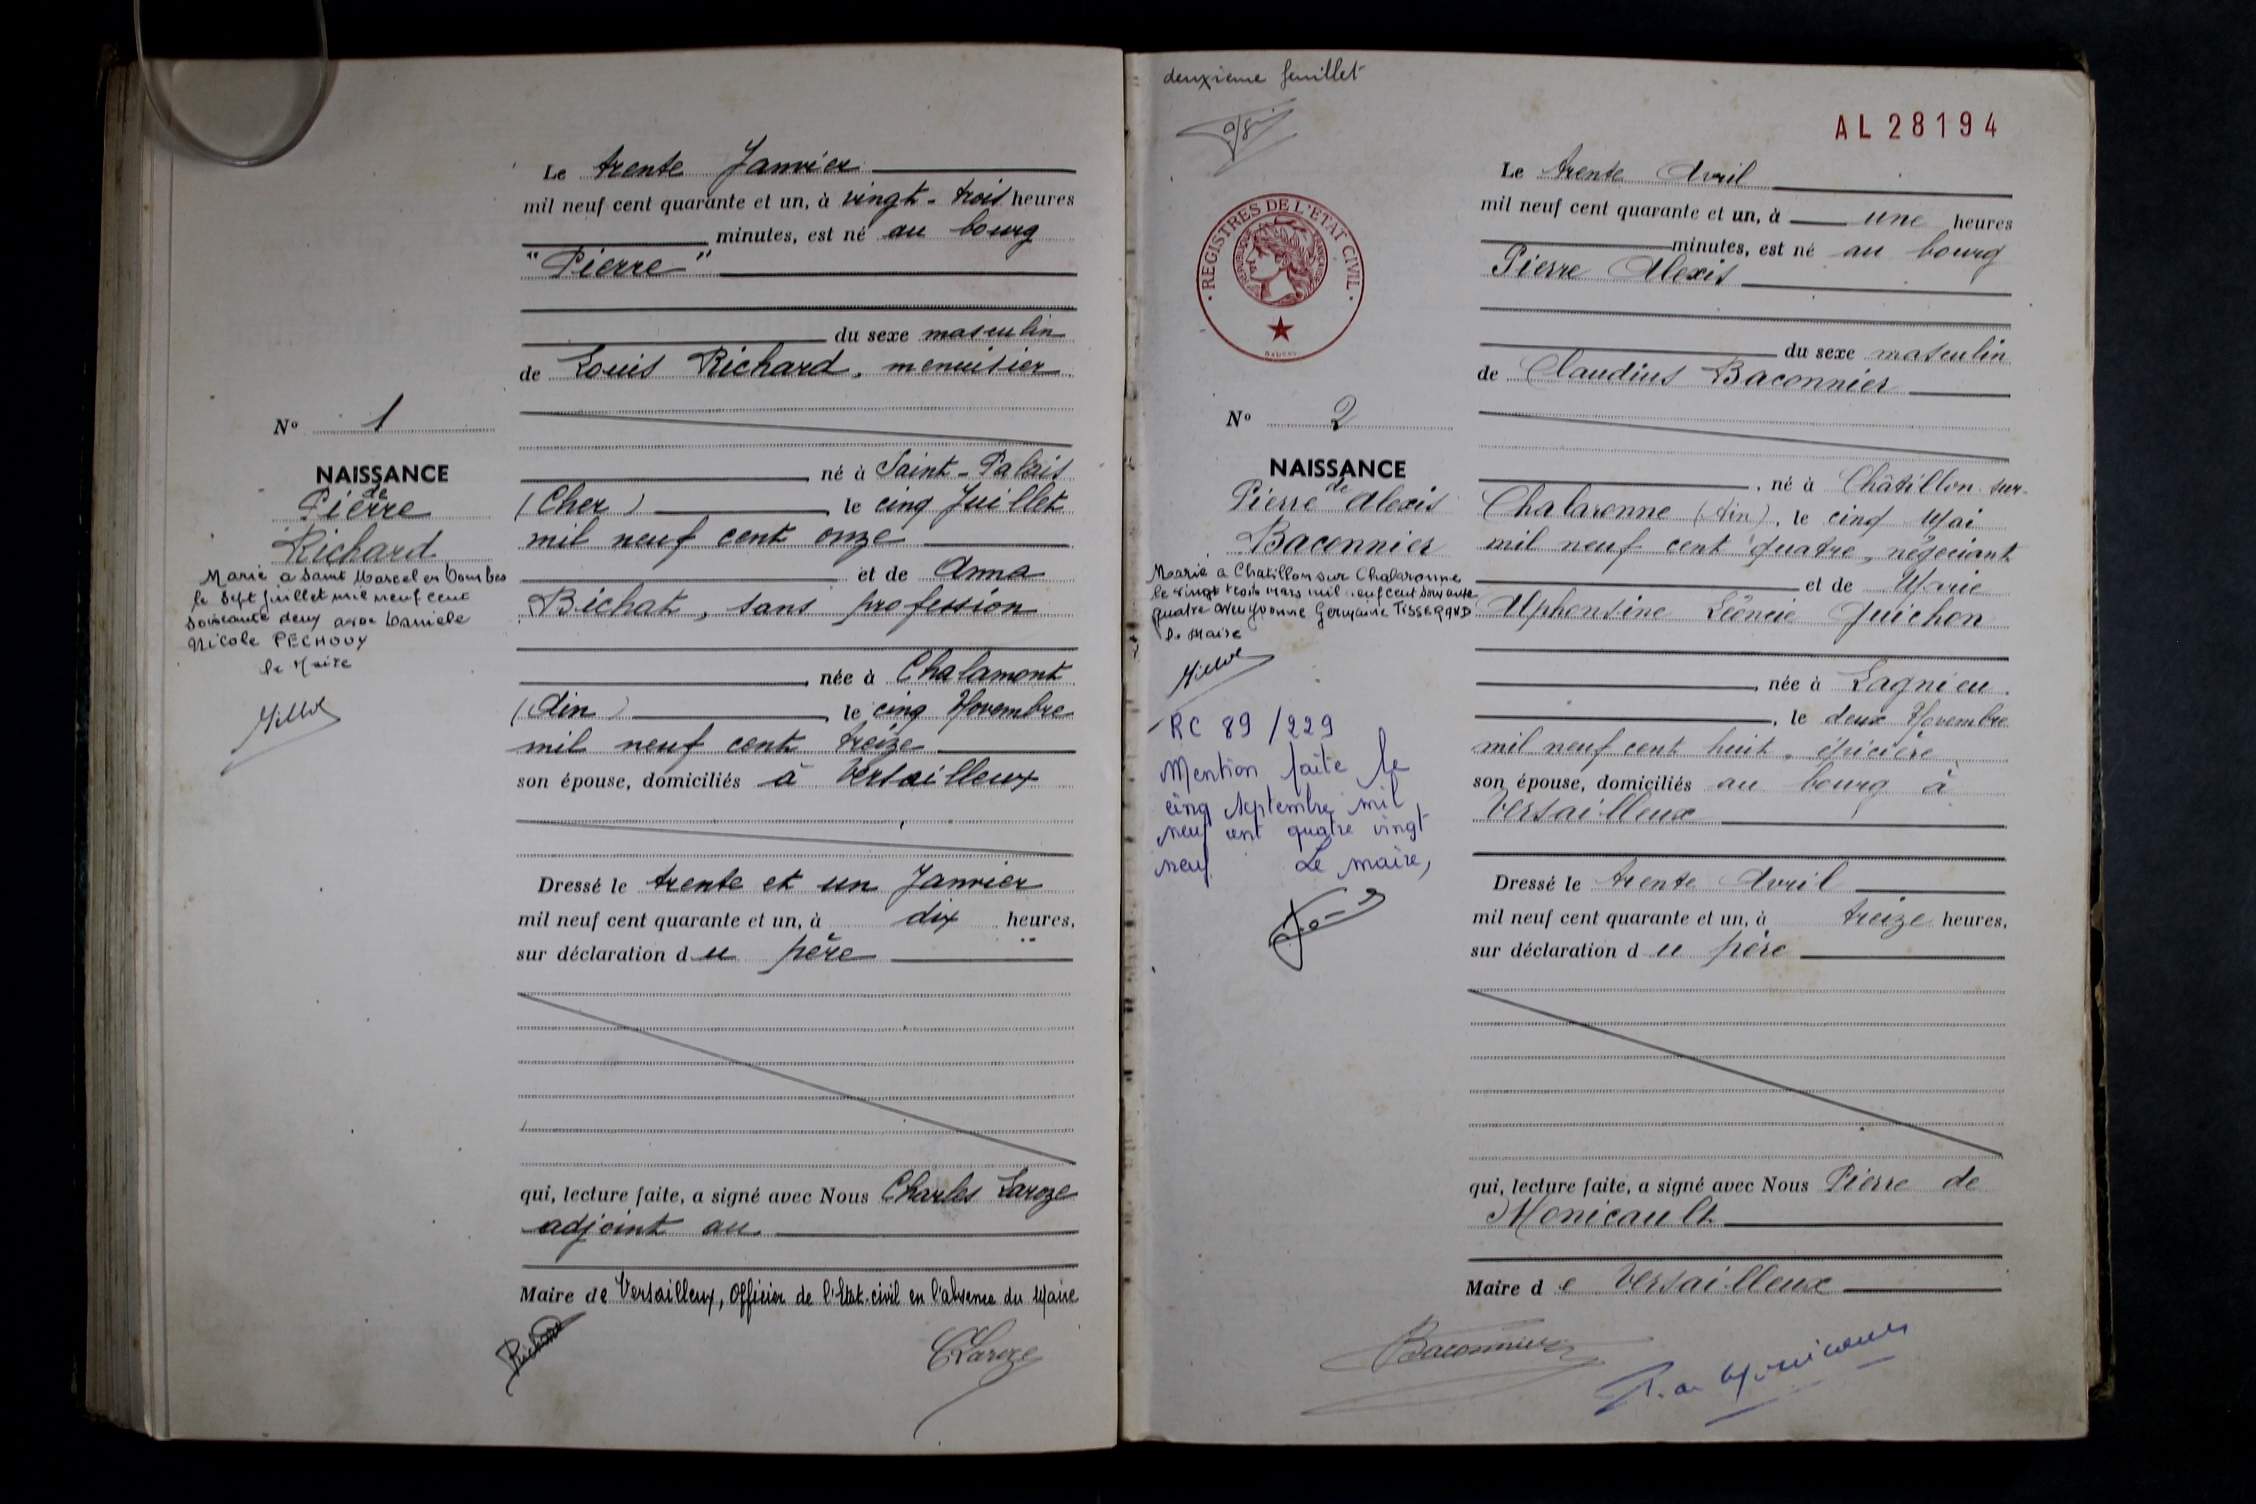 Le trente Janvier
mil neuf cent quarante et un, à vingt-trois heures
minutes, est né au bourg
"Pierre"
du sexe masculin
de Louis Richard, menuisier
né à Saint-Palais
(Cher) le cinq Juillet
mil neuf cent onze
et de Anna
Bichat, sans profession
née à Chalamont
(Ain), le cinq Novembre
mil neuf cent treize
son épouse, domiciliés à Versailleux
Dressé le trente et un Janvier
mil neuf cent quarante et un, à dix heures,
sur déclaration du père
qui, lecture faite, a signé avec Nous Charles Laroze
adjoint au
Maire de Versailleux, Officier de l'Etat-civil en l'absence du Maire
Richard
CLaroze
N° 1
NAISSANCE
de
Pierre
Richard
Marié a Saint Marcel en Dombes
le Sept juillet mil neuf cent
soixante deux avec Daniele
Nicole PECHOUX
le Maire
deuxième feuillet
AL28194
REGISTRES DE L'ETAT CIVIL
N° 2
NAISSANCE
de
Pierre Alexis
Baconnier
Marié a Chatillon sur Chalaronne
le vingt trois mars mil neuf cent soixante
quatre avec Yvonne Germaine TISSERAND
le Maire
RC 89/229
Mention faite le
cinq septembre mil
neuf cent quatre vingt
neuf Le maire,
Le trente Avril
mil neuf cent quarante et un, à une heures
minutes, est né au bourg
Pierre Alexis
du sexe masculin
de Claudius Baconnier
né à Châtillon-sur-
Chalaronne (Ain), le cinq Mai
mil neuf cent quatre, négociant
et de Marie
Alphonsine Léoncie Guichon
née à Lagnieu
, le deux Novembre
mil neuf cent huit, épicière
son épouse, domiciliés au bourg à
Versailleux
Dressé le trente Avril
mil neuf cent quarante et un, à treize heures,
sur déclaration du père
qui, lecture faite, a signé avec Nous Pierre de
Monicault
Maire de Versailleux
Baconnier
P. de Monicault